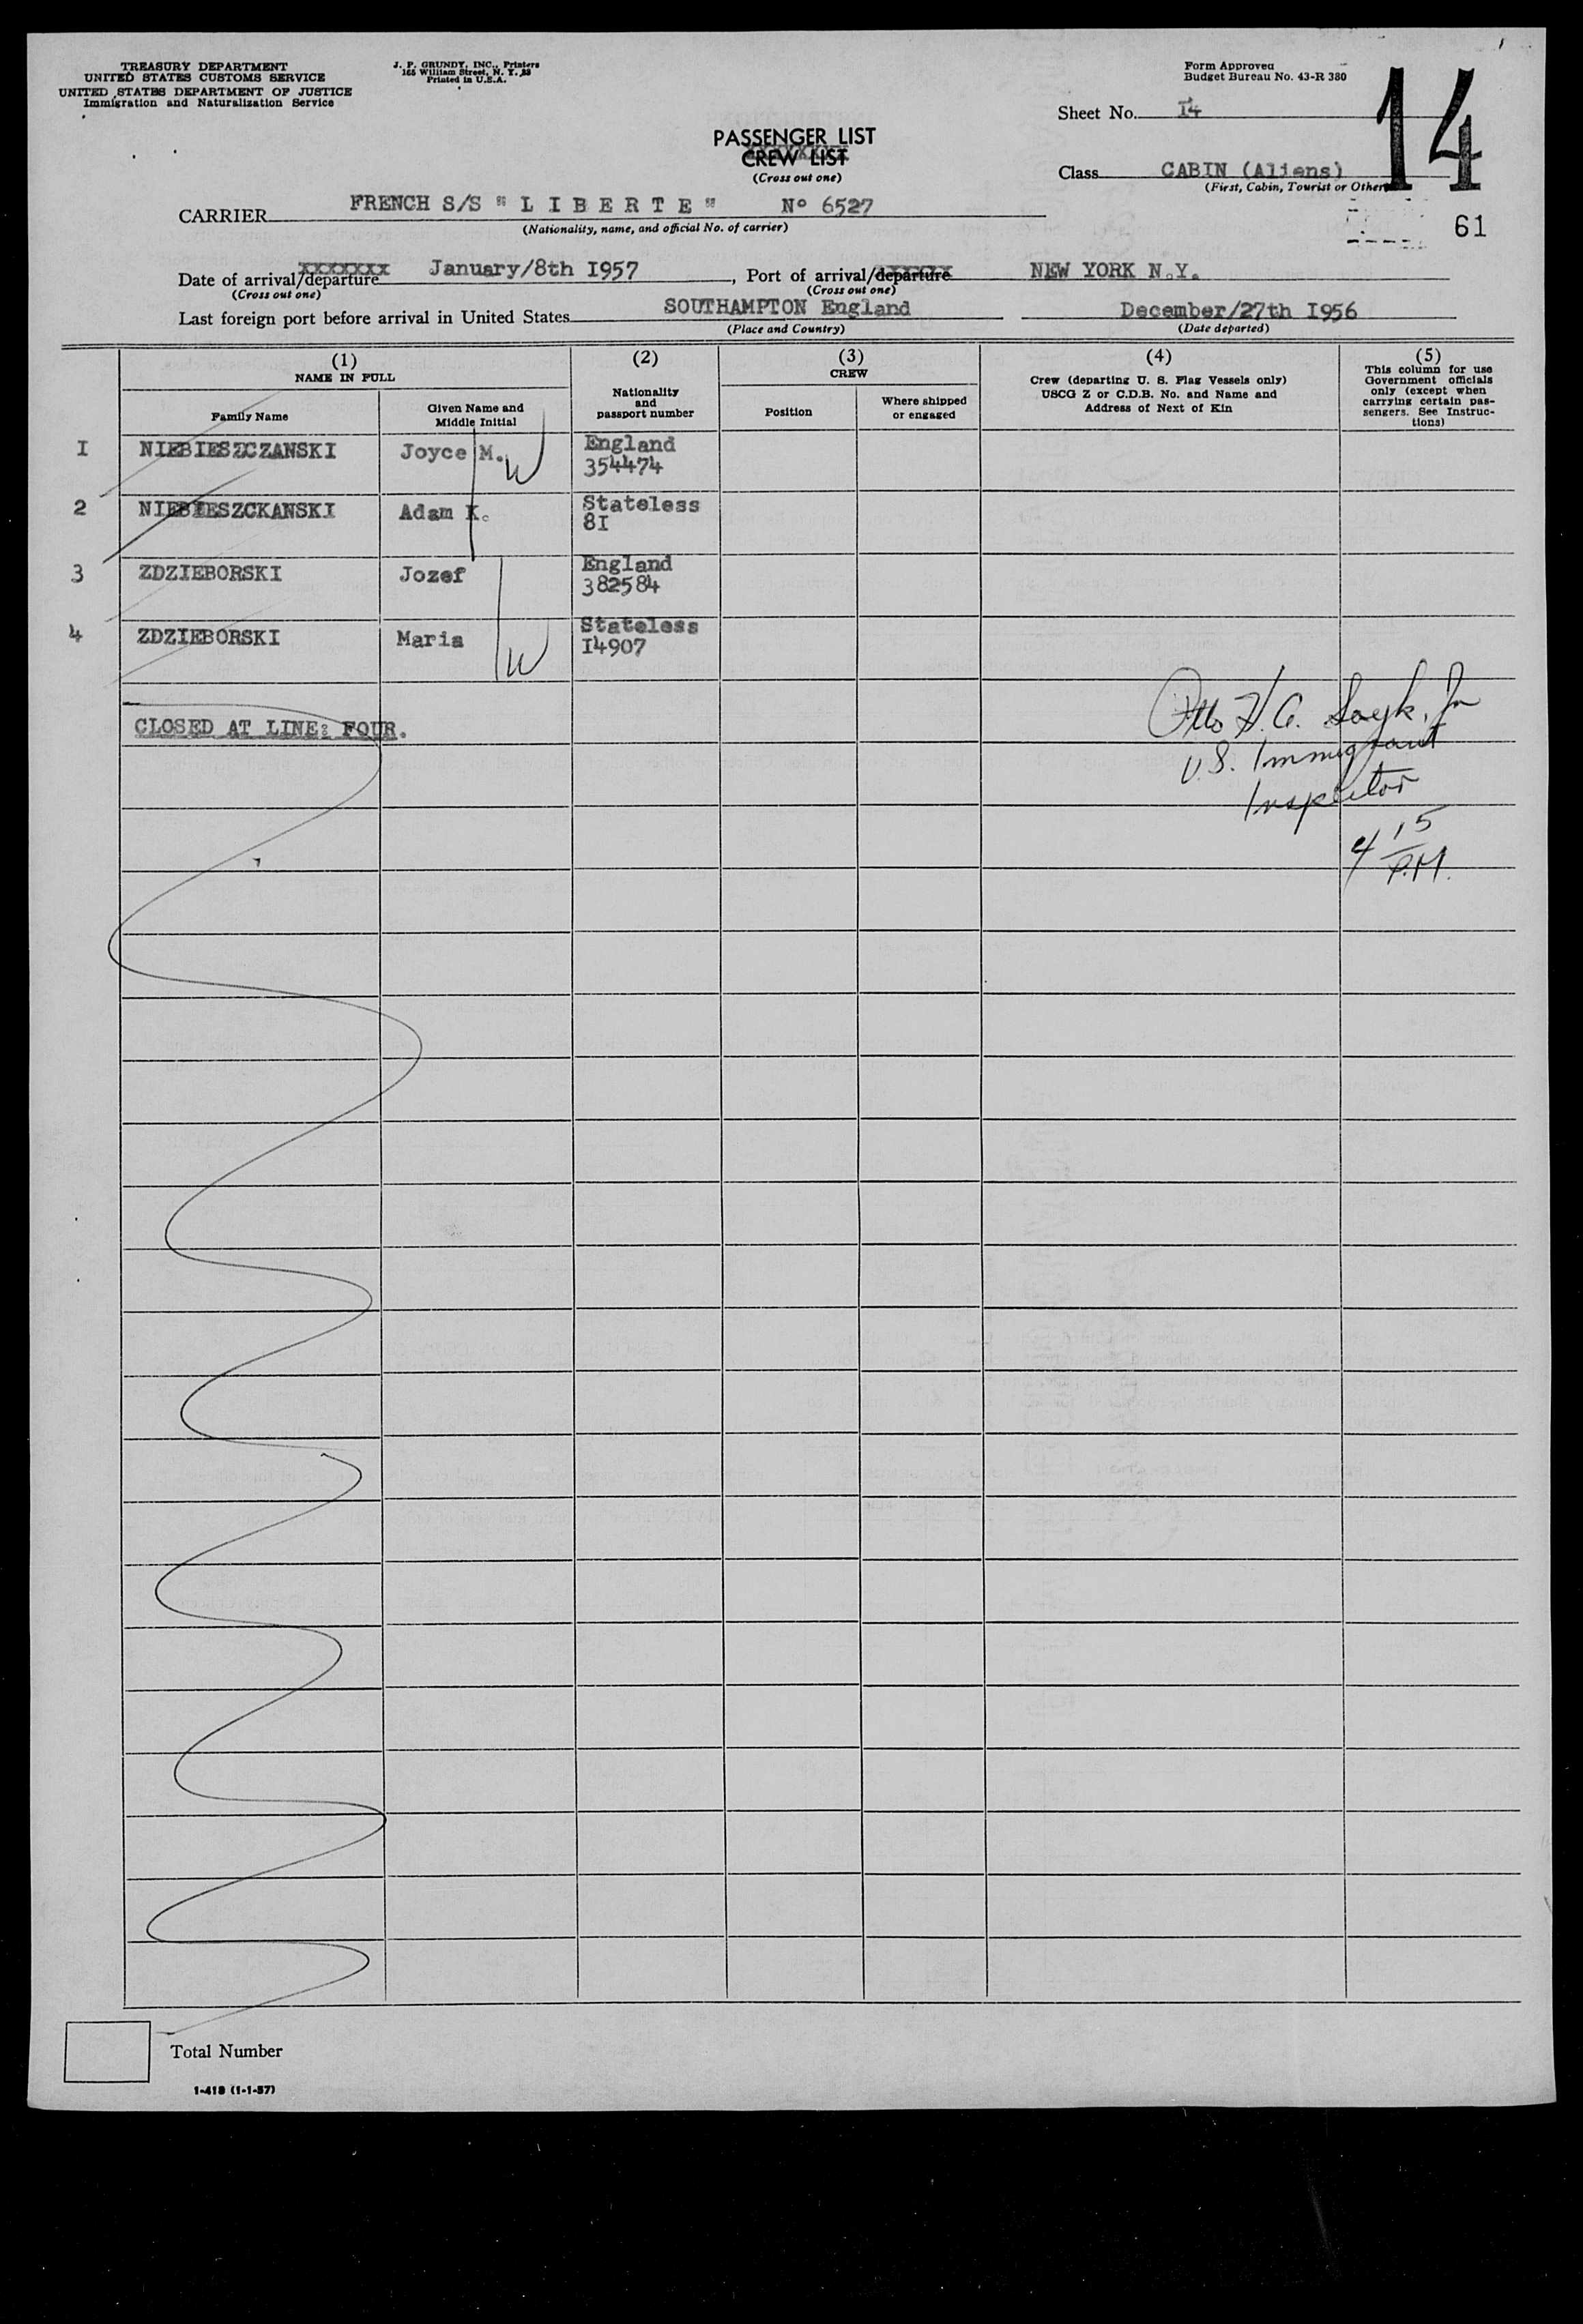 TREASURY DEPARTMENT
UNITED STATES CUSTOMS SERVICE
UNITED STATES DEPARTMENT OF JUSTICE
Immigration and Naturalization Service
J. P. GRUNDY, INC., Printers
165 William Street, N. Y. 38
Printed in U.S.A.
Form Approved
Budget Bureau No. 43-R 380
Sheet No. I4
14
PASSENGER LIST
CREW LIST
(Cross out one)
Class CABIN (Aliens)
(First, Cabin, Tourist or Other)
CARRIER FRENCH S/S "L I B E R T E" Nº 6527
(Nationality, name, and official No. of carrier)
61
Date of arrival/departure January/8th I957, Port of arrival/departure NEW YORK N.Y.
(Cross out one) (Cross out one)
Last foreign port before arrival in United States SOUTHAMPTON England December/27th I956
(Place and Country) (Date departed)
(1) (2) (3) (4) (5)
NAME IN FULL
Family Name
Given Name and
Middle Initial
Nationality
and
passport number
CREW
Position
Where shipped
or engaged
Crew (departing U. S. Flag Vessels only)
USCG Z or C.D.B. No. and Name and
Address of Next of Kin
This column for use
Government officials
only (except when
carrying certain pas-
sengers. See Instruc-
tions)
I NIEBIESZCZANSKI Joyce M. W England
354474
2 NIEBIESZCKANSKI Adam K. Stateless
8I
3 ZDZIEBORSKI Jozef England
382584
4 ZDZIEBORSKI Maria W Stateless
I4907
CLOSED AT LINE: FOUR.
Otto H. A. Jr
U.S. Immigrant
Inspector
4 15
P.M.
Total Number
1-418 (1-1-57)